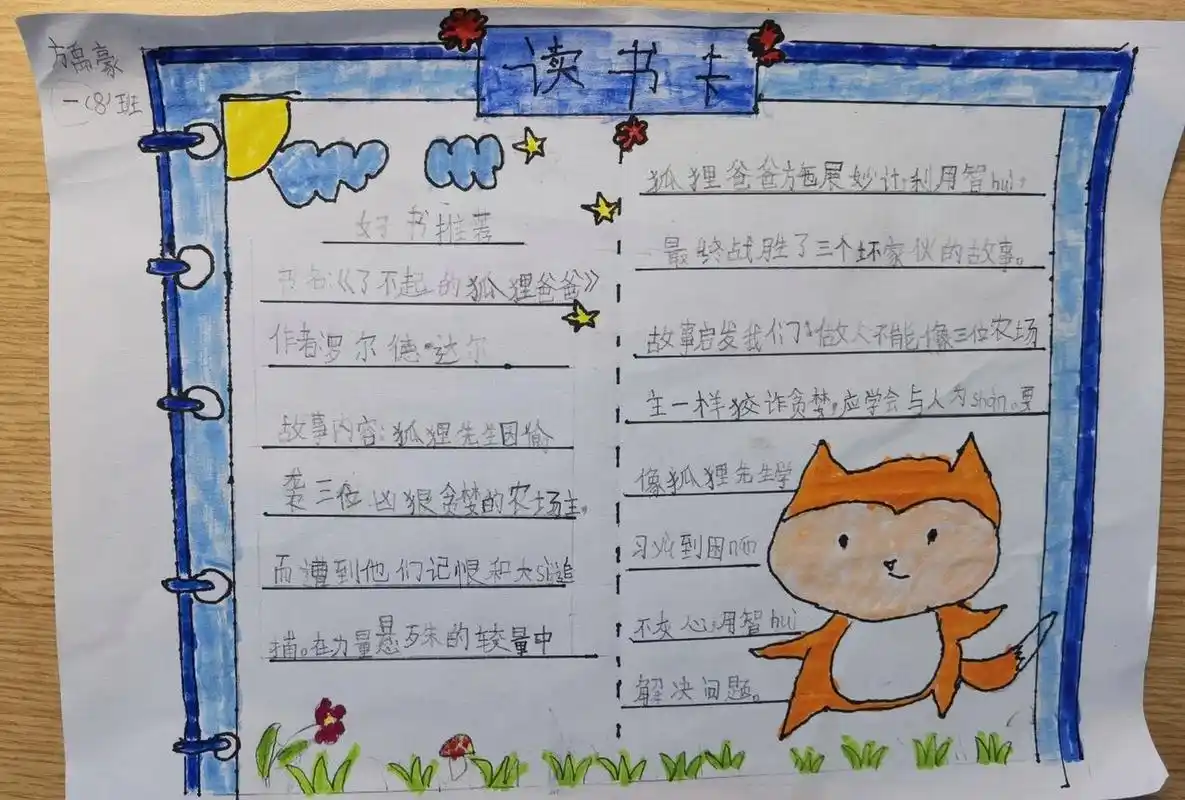 方禹豪
一(8)班
读书卡
好书推荐
书名:《了不起的狐狸爸爸》
作者:罗尔德·达尔
故事内容:狐狸先生因偷
袭三位凶狠贪婪的农场主,
而遭到他们记恨和大sì追
捕。在力量悬殊的较量中
狐狸爸爸施展妙计,利用智huì,
最终战胜了三个坏家伙的故事。
故事启发我们:做人不能像三位农场
主一样狡诈贪婪,应学会与人为shàn。要
像狐狸先生学
习,yù到困nan
不灰心,用智huì
解决问题。